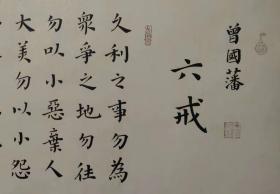 曾國藩
六戒
久利之事勿為
眾爭之地勿往
勿以小惡棄人
大美勿以小怨